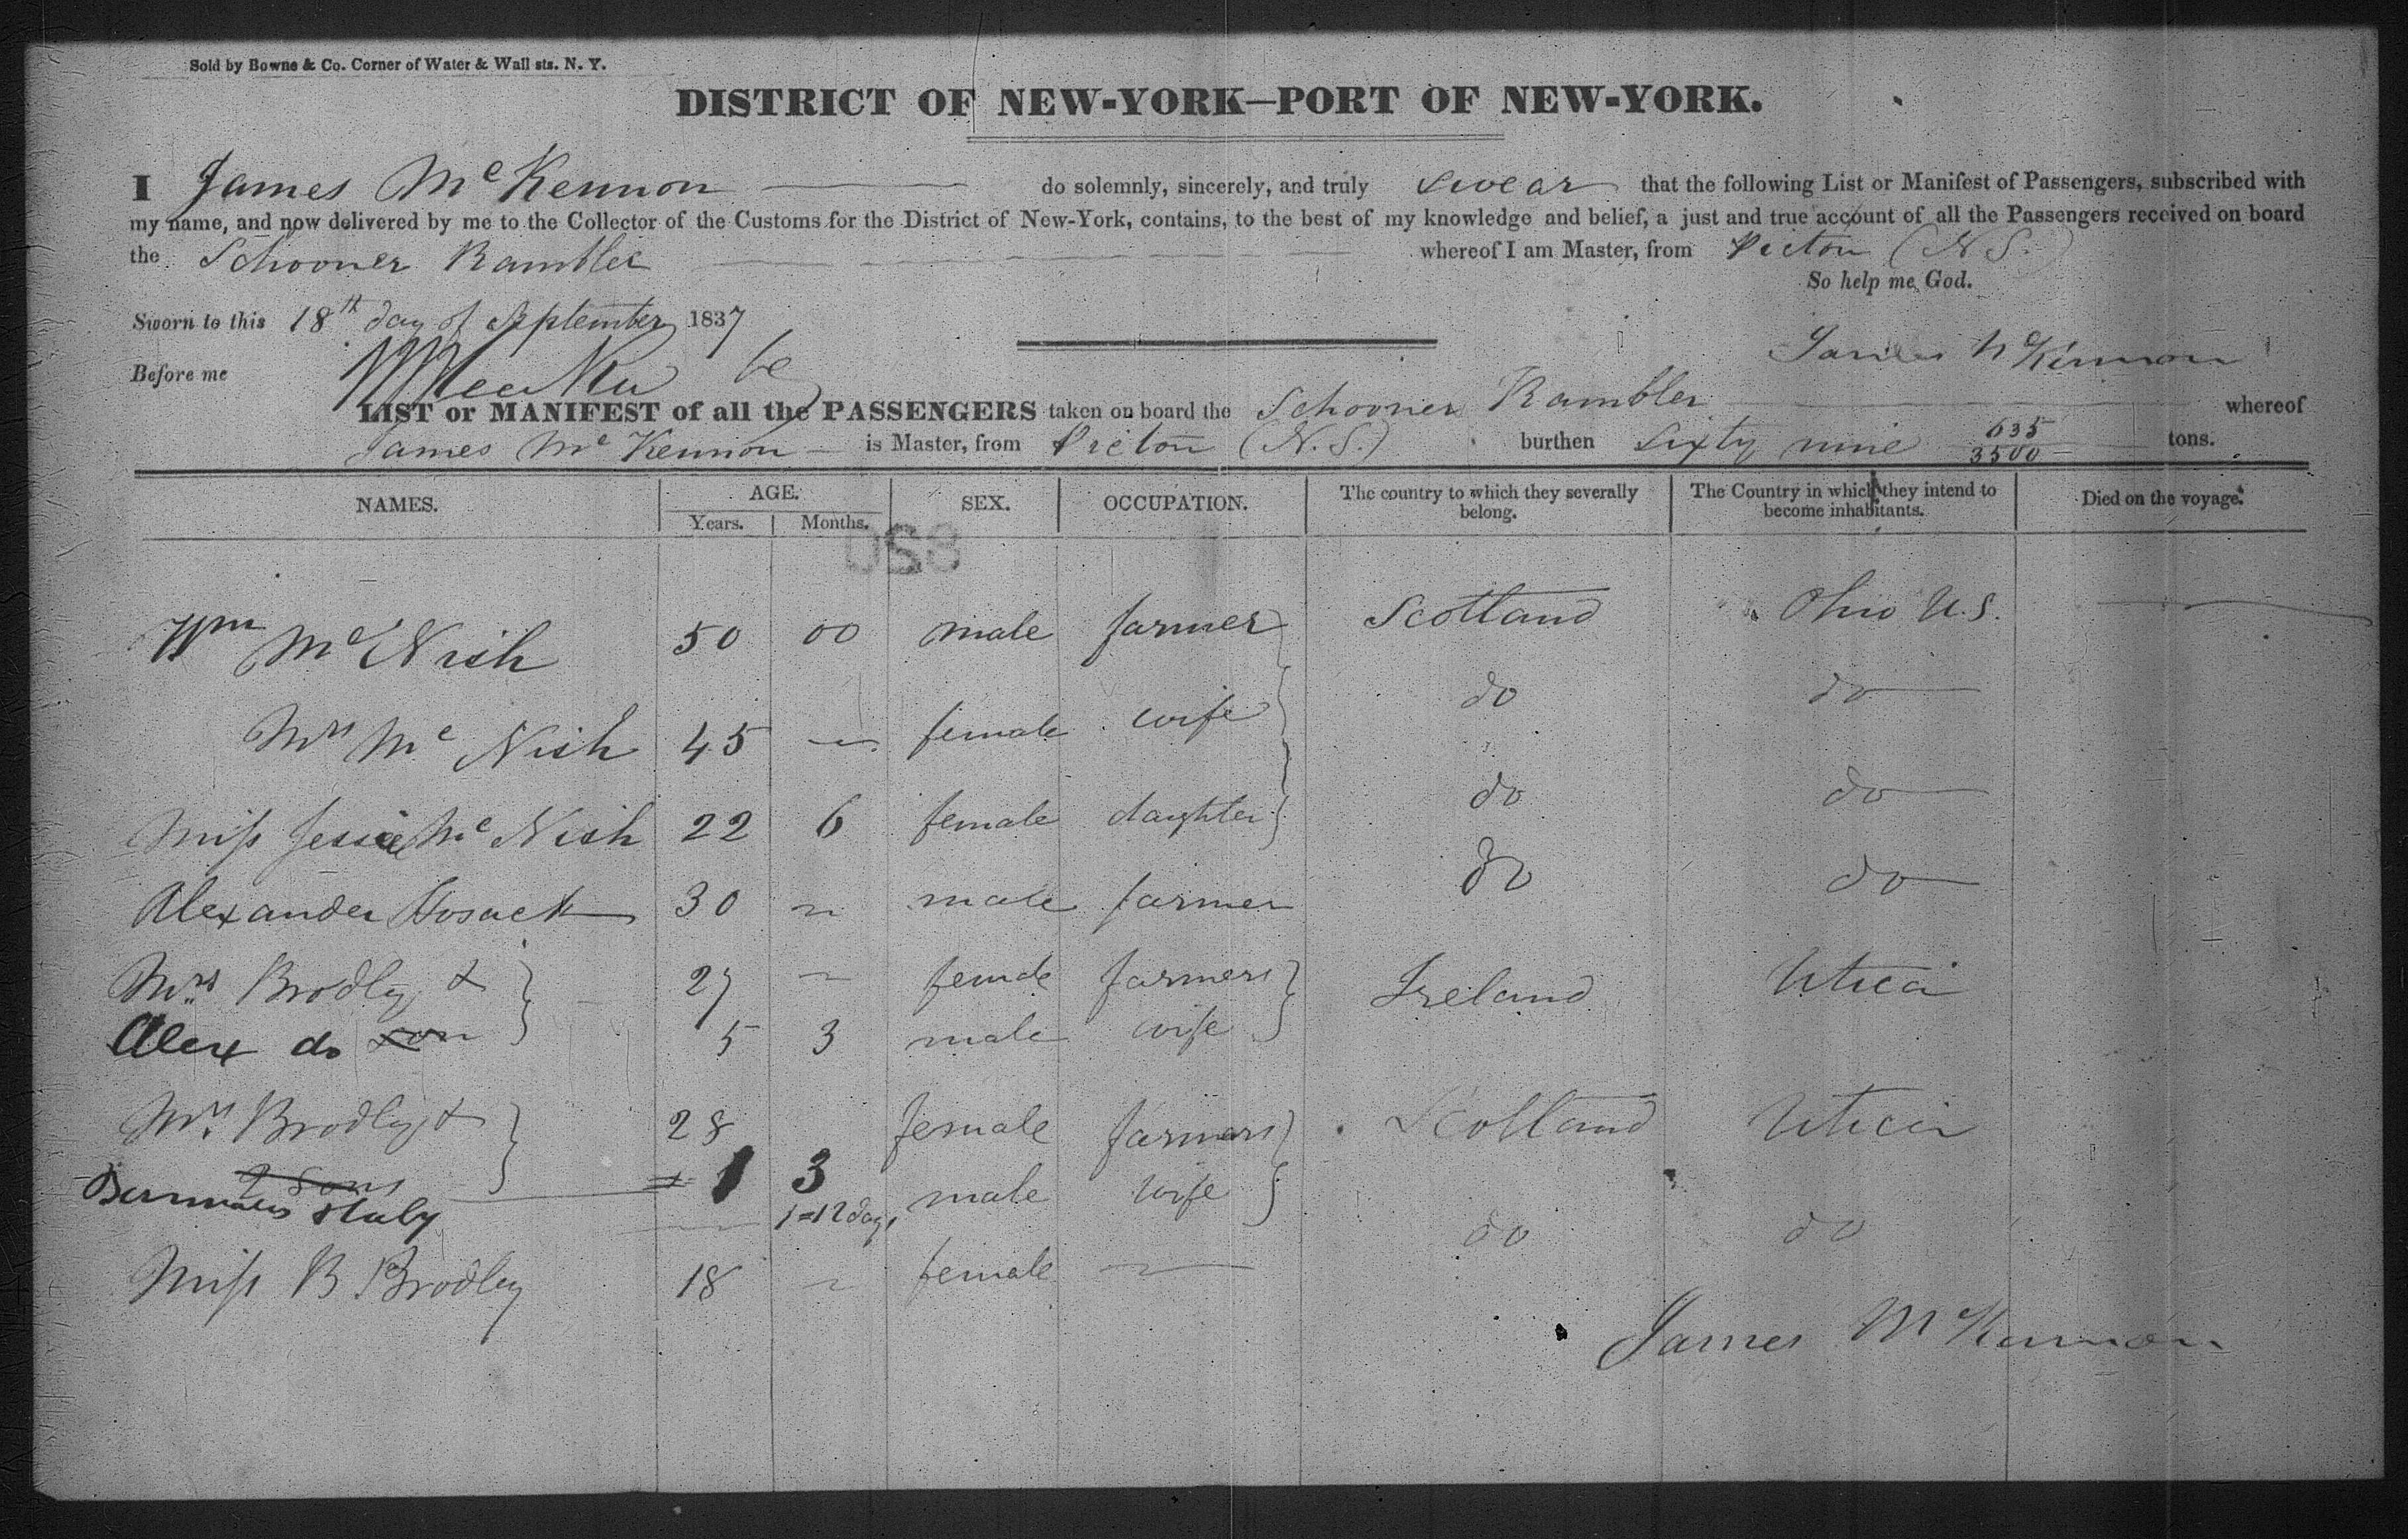 Sold by Bowne & Co. Corner of Water & Wall sts. N. Y.
DISTRICT OF NEW-YORK—PORT OF NEW-YORK.
I James McKennon do solemnly, sincerely, and truly swear that the following List or Manifest of Passengers, subscribed with
my name, and now delivered by me to the Collector of the Customs for the District of New-York, contains, to the best of my knowledge and belief, a just and true account of all the Passengers received on board
the Schooner Rambler whereof I am Master, from Picton (N.S.)
So help me God.
Sworn to this 18th day of September 1837
James McKennon
Before me
LIST or MANIFEST of all the PASSENGERS taken on board the Schooner Rambler whereof
James McKennon is Master, from Picton (N.S.) burthen sixty nine 635/3500 tons.
NAMES. AGE. SEX. OCCUPATION. The country to which they severally belong. The Country in which they intend to become inhabitants. Died on the voyage.
Years. Months.
Wm McNish 50 00 male farmer Scotland Ohio U.S.
Mrs Mc Nish 45 female wife do do
Miss Jessie Mc Nish 22 6 female daughter do do
Alexander Hosack 30 male farmer do do
Mrs Brodly & 27 female farmers Ireland Utica
Alex do son 5 3 male wife
Mrs Brodly & 28 female farmers Scotland Utica
2 sons 1 3 male wife
& baby 1 = 12 days
Miss B Brodley 18 female do do
James McKennon